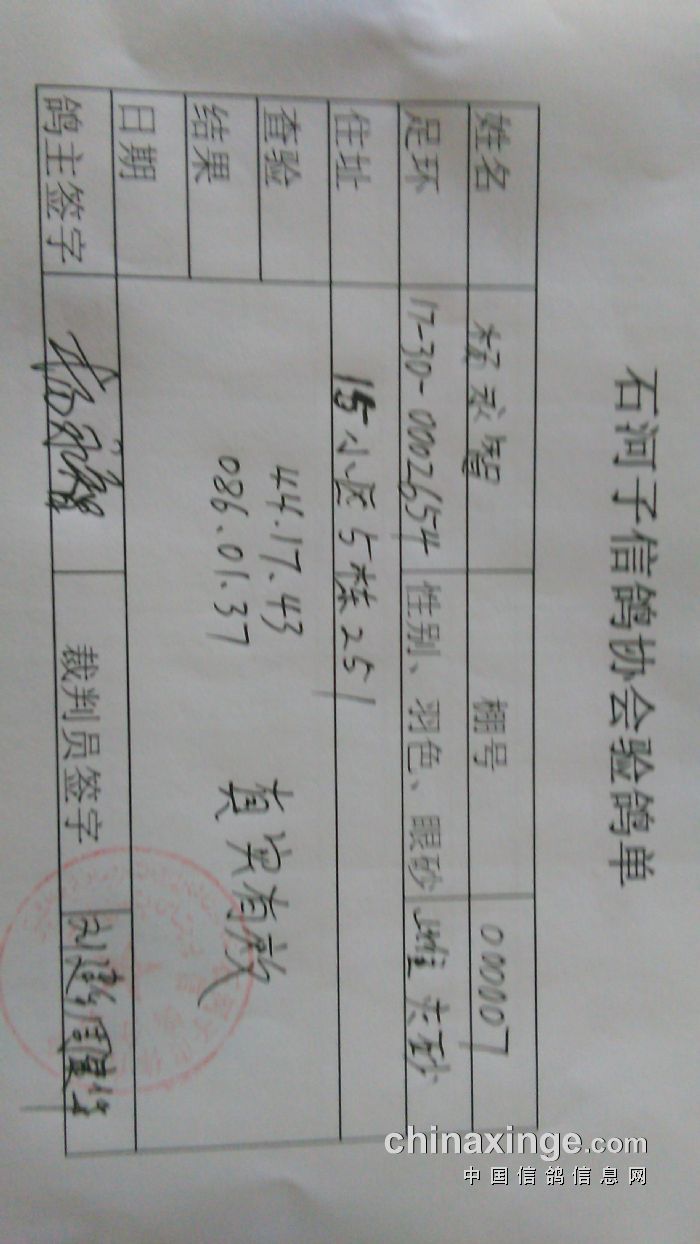 石河子信鸽协会验鸽单
姓名 杨永智 棚号 000007
足环 17-30-0002654 性别、羽色、眼砂 雌 砂
住址 15小区5栋251
查验 44.17.43
结果 086.01.37 真实有效
日期
鸽主签字 杨永智 裁判员签字
chinaxinge.com
中国信鸽信息网